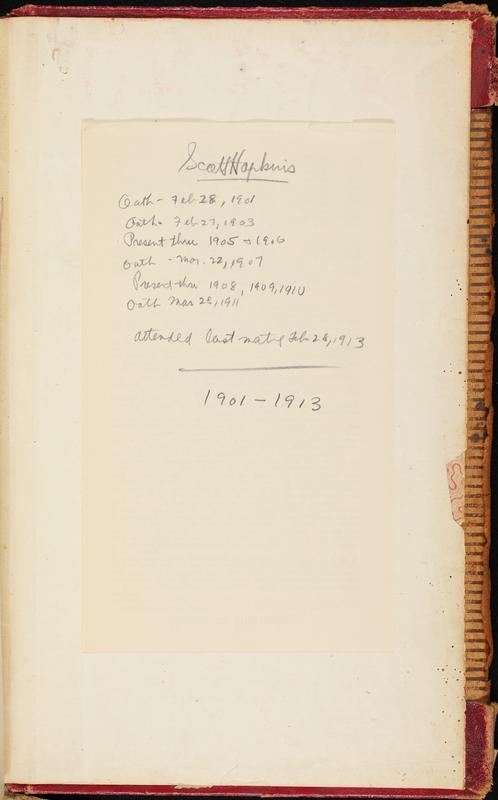 Scott Hopkins
Oath - Feb 28, 1901
Oath - Feb 27, 1903
Present thru 1905 & 1906
Oath - Mar. 22, 1907
Present thru 1908, 1909, 1910
Oath Mar 28, 1911
attended last Feb 28, 1913
1901 - 1913